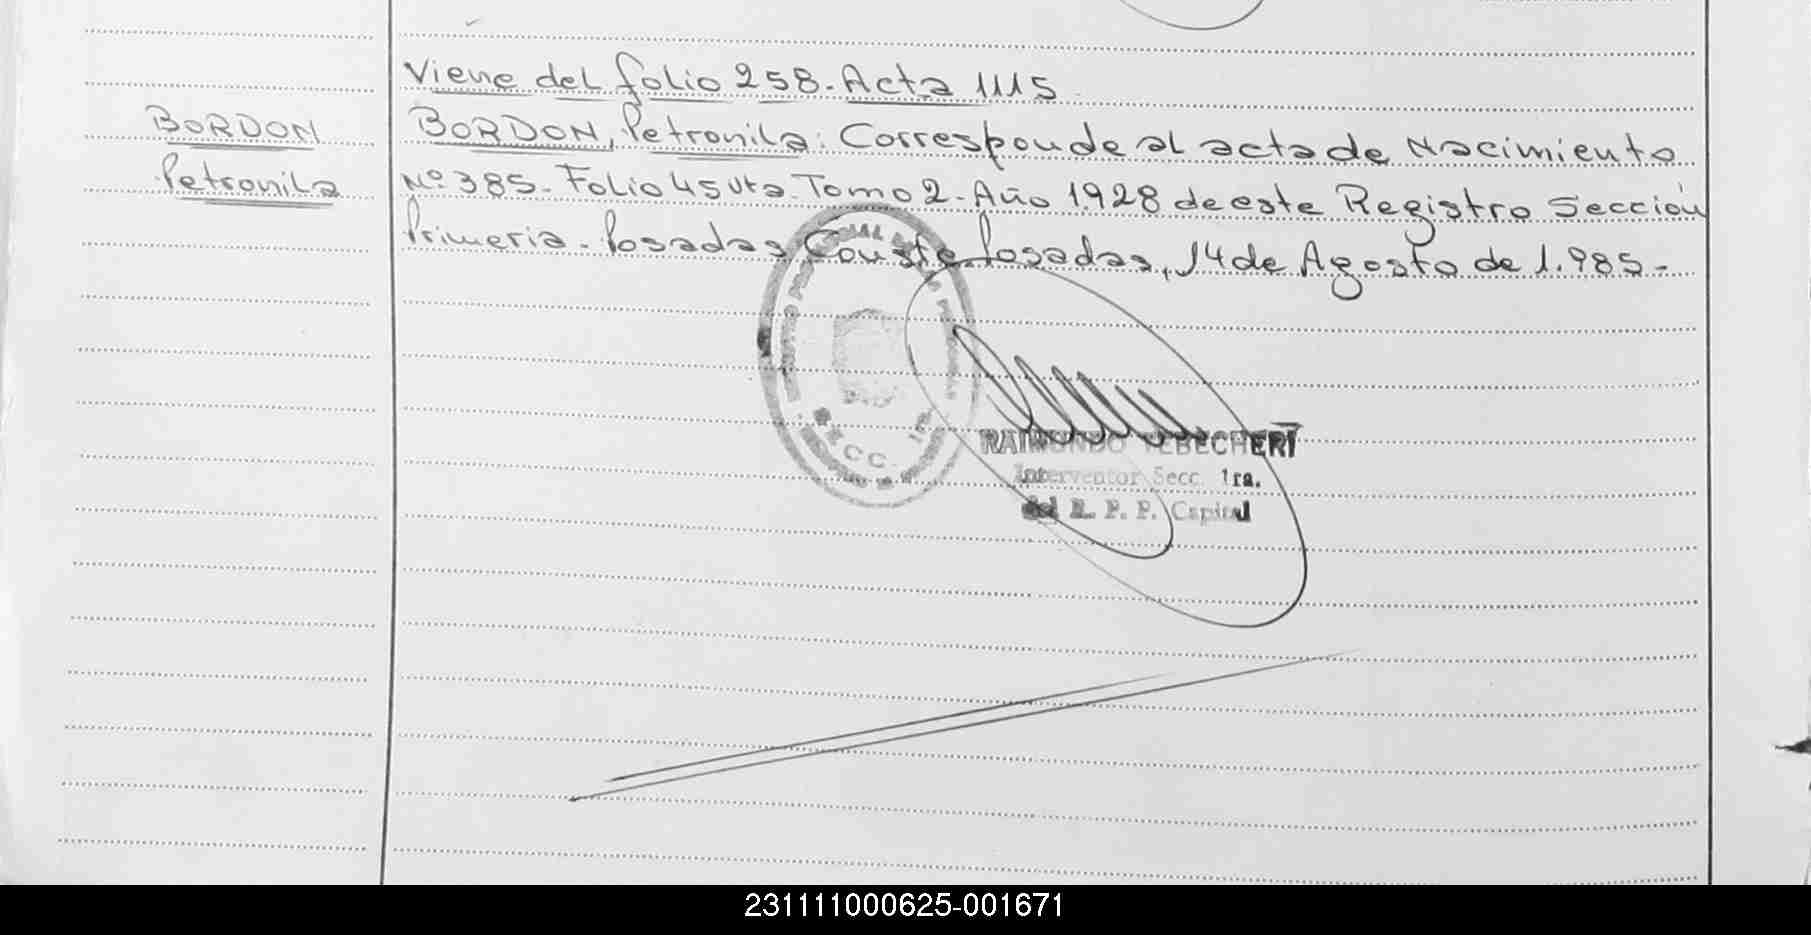 Viene del folio 258. Acta 1115
BORDON
Petronila
BORDON, Petronila: Corresponde al acta de Nacimiento
Nº 385. Folio 45 vta. Tomo 2. Año 1.928 de este Registro Sección
Primeria. Posadas Conste. Posadas, 14 de Agosto de 1.985.-
RAIMUNDO
Interventor Secc. 1ra.
del R. P. P. Capital
231111000625-001671